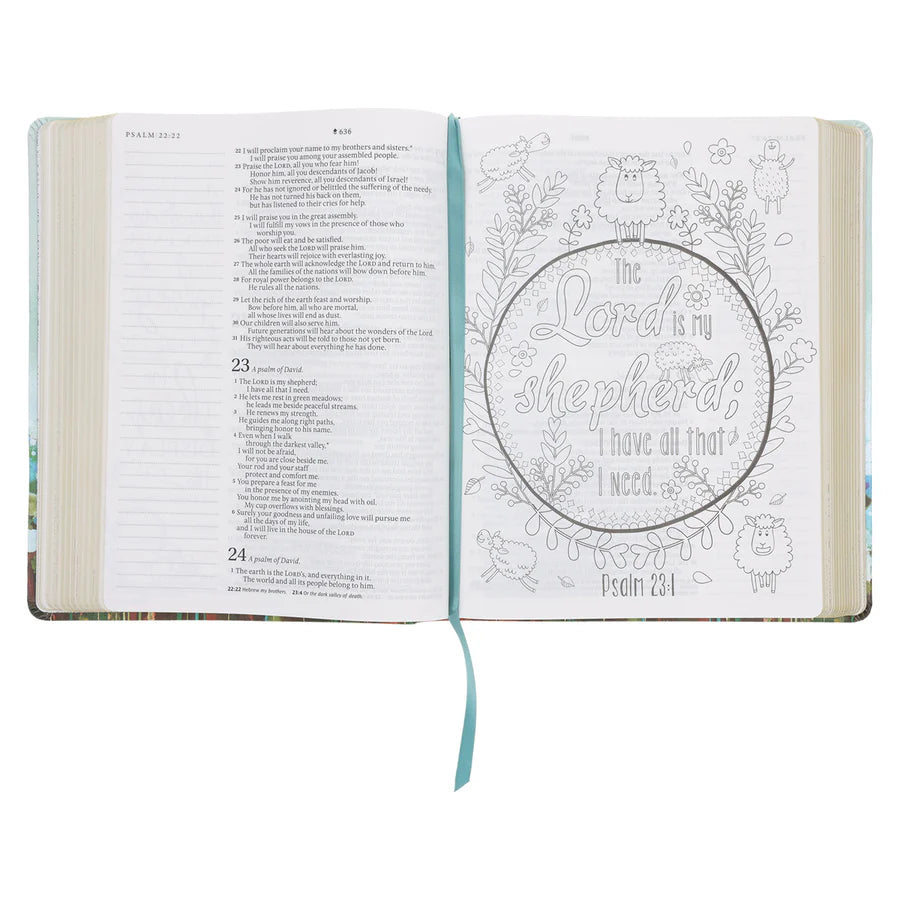 PSALM 22:22
636
22 I will proclaim your name to my brothers and sisters.*
I will praise you among your assembled people.
23 Praise the LORD, all you who fear him!
Honor him, all you descendants of Jacob!
Show him reverence, all you descendants of Israel!
24 For he has not ignored or belittled the suffering of the needy.
He has not turned his back on them,
but has listened to their cries for help.
25 I will praise you in the great assembly.
I will fulfill my vows in the presence of those who
worship you.
26 The poor will eat and be satisfied.
All who seek the LORD will praise him.
Their hearts will rejoice with everlasting joy.
27 The whole earth will acknowledge the LORD and return to him.
All the families of the nations will bow down before him.
28 For royal power belongs to the LORD.
He rules all the nations.
29 Let the rich of the earth feast and worship.
Bow before him, all who are mortal,
all whose lives will end as dust.
30 Our children will also serve him.
Future generations will hear about the wonders of the Lord.
31 His righteous acts will be told to those not yet born.
They will hear about everything he has done.
23 A psalm of David.
1 The LORD is my shepherd;
I have all that I need.
2 He lets me rest in green meadows;
he leads me beside peaceful streams.
3 He renews my strength.
He guides me along right paths,
bringing honor to his name.
4 Even when I walk
through the darkest valley,*
I will not be afraid,
for you are close beside me.
Your rod and your staff
protect and comfort me.
5 You prepare a feast for me
in the presence of my enemies.
You honor me by anointing my head with oil.
My cup overflows with blessings.
6 Surely your goodness and unfailing love will pursue me
all the days of my life,
and I will live in the house of the LORD
forever.
24 A psalm of David.
1 The earth is the LORD's, and everything in it.
The world and all its people belong to him.
22:22 Hebrew my brothers. 23:4 Or the dark valley of death.
The
Lord is my
shepherd;
I have all that
I need.
Psalm 23:1